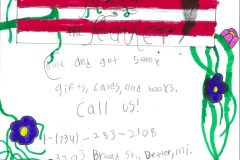 the
Come and get some
gifts, cards, and books.
Call us!
1-(734)-253-2108
Broad St., Dexter, Mi.